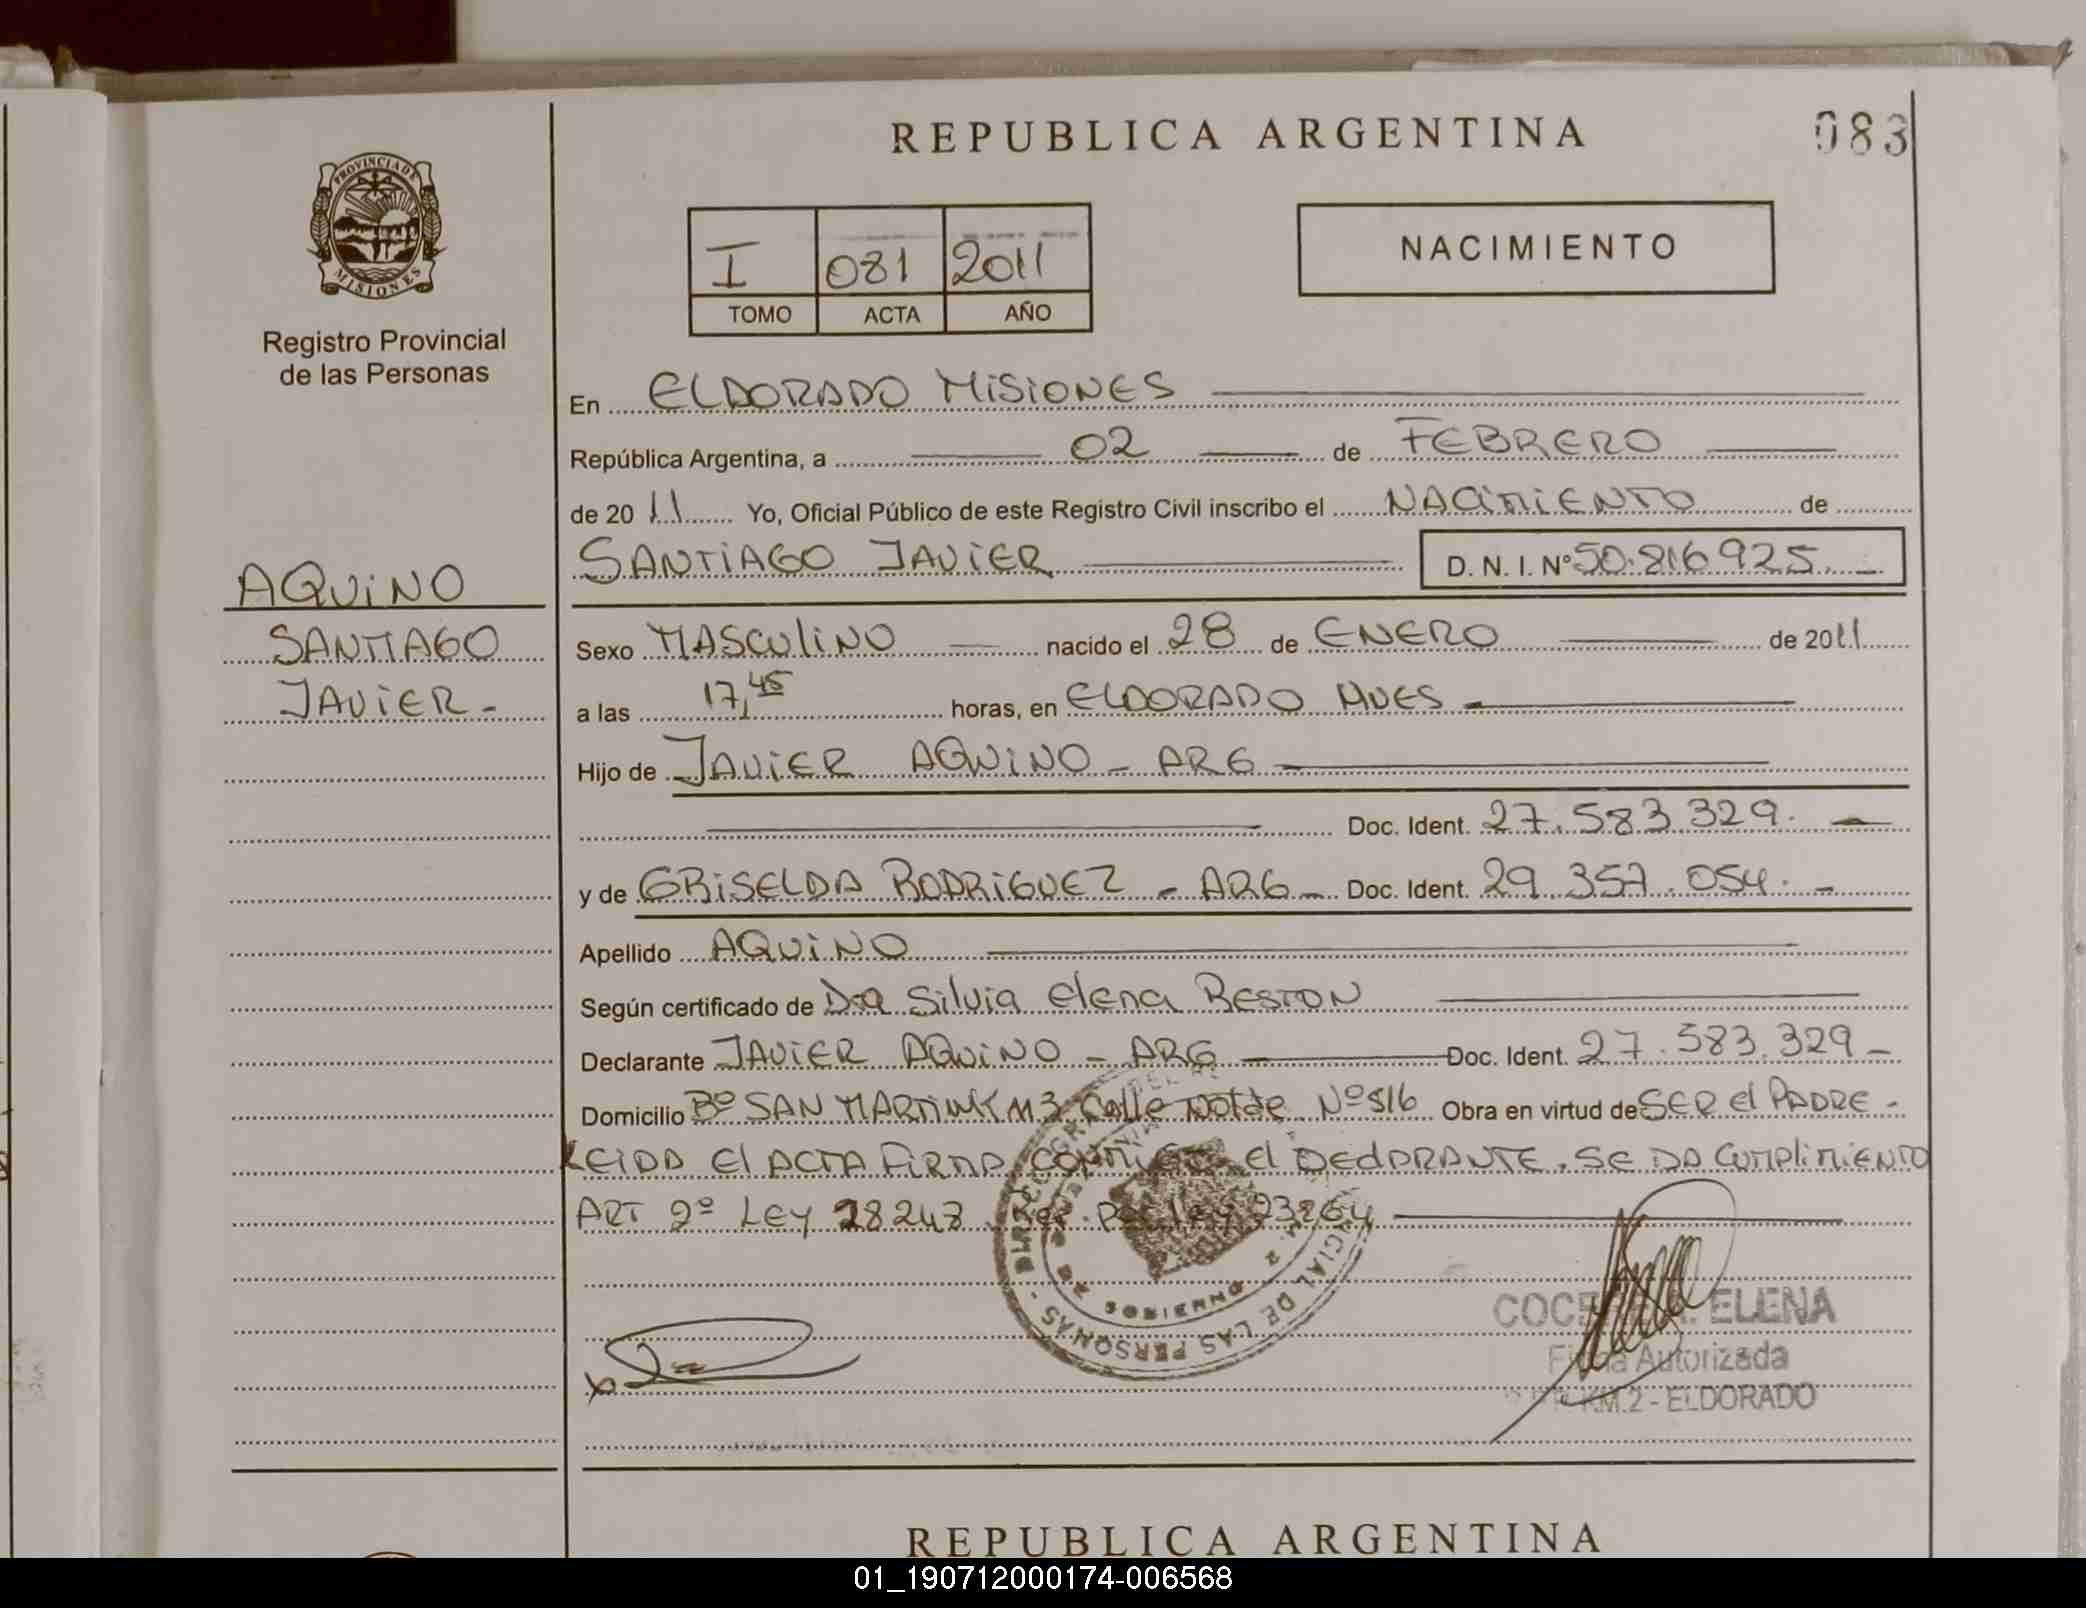 REPUBLICA ARGENTINA
083
PROVINCIA DE
MISIONES
Registro Provincial
de las Personas
I 081 2011
TOMO ACTA AÑO
NACIMIENTO
En ELDORADO MISIONES
República Argentina, a 02 de FEBRERO
de 2011 Yo, Oficial Público de este Registro Civil inscribo el NACIMIENTO de
SANTIAGO JAVIER D. N. I. Nº 50.816925.
AQUINO
SANTIAGO
JAVIER -
Sexo MASCULINO nacido el 28 de ENERO de 2011
a las 17,45 horas, en ELDORADO MNES
Hijo de JAVIER AQUINO - ARG
Doc. Ident. 27.583.329.
y de GRISELDA RODRIGUEZ - ARG - Doc. Ident. 29.357.054. -
Apellido AQUINO
Según certificado de Dra Silvia Elena BESTON
Declarante JAVIER AQUINO - ARG Doc. Ident. 27.583.329 -
Domicilio Bº SAN MARTIN KM 3 Calle Nº 516 Obra en virtud de SER El PADRE -
LEIDA El ACTA FIRMA CONMIGO El DEClARANTE. SE DA CUMPliMIENTO
ART 2º LEY 18248 Ref. Por ley 23264
DE LAS PERSONAS
ELENA
Firma Autorizada
KM.2 - ELDORADO
REPUBLICA ARGENTINA
01_190712000174-006568